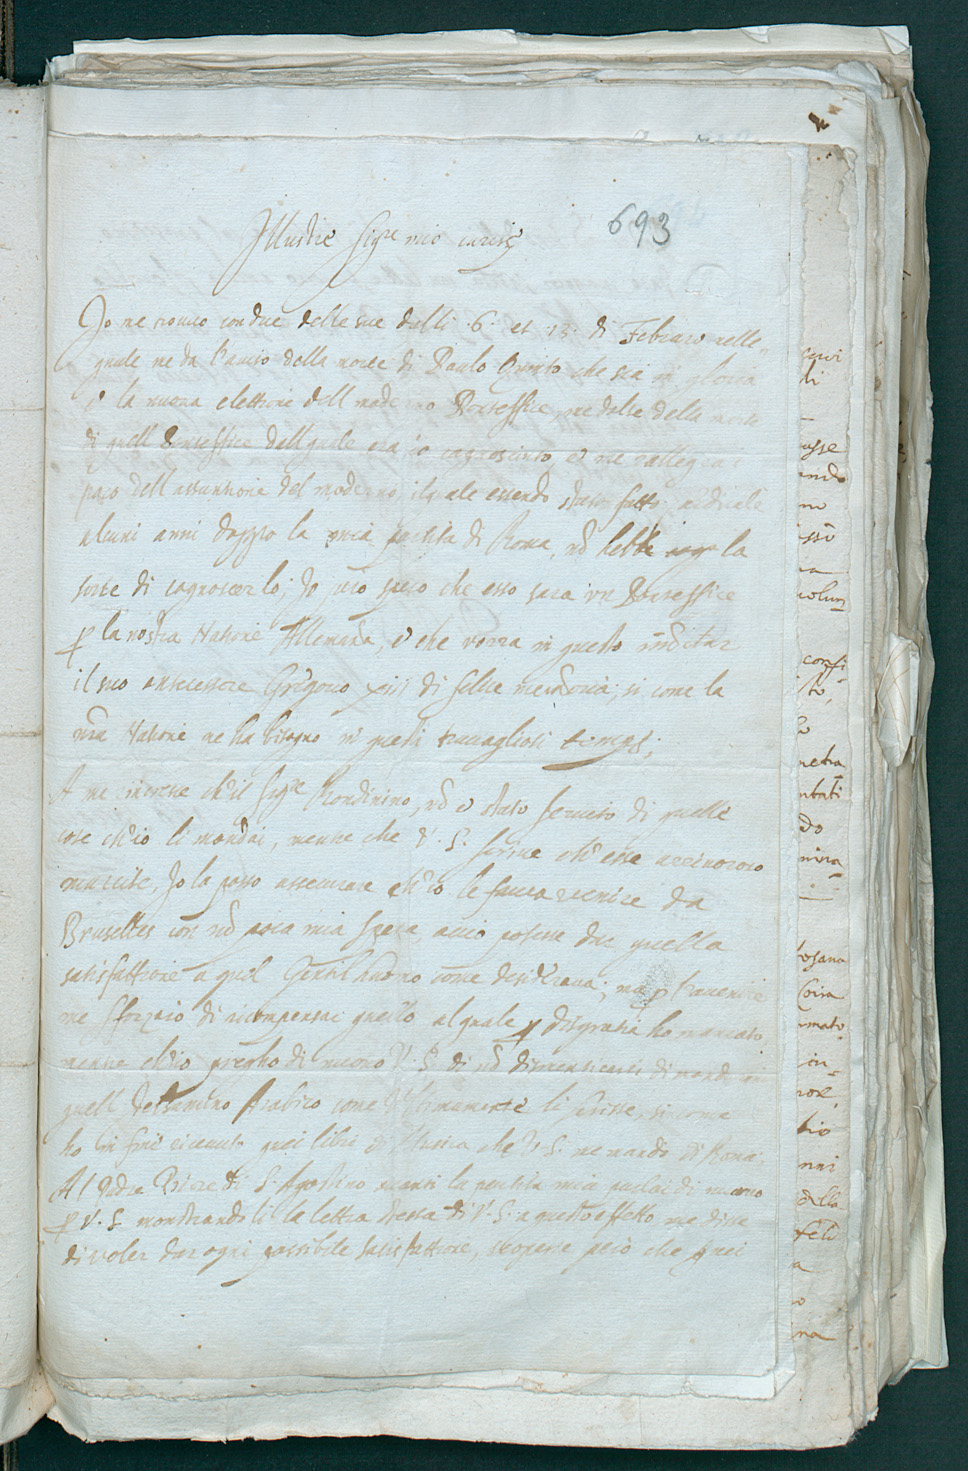 693
Illustre Sigre mio cariss
Io me trovo con due delle sue delli .6. et 13. di Febraro nelle
quale me da l'aviso della morte di Paulo Quinto che sia in gloria
e la nuova elettione dell moderno Pontessice, me dolse della morte
di quell Pontessice dell quale era io cognosciuto et me rallegra
poco dell assuntione del moderno, il quale essendo stato fatto cardinale
alcuni anni doppo la mia partita di Roma, nō hebbe la
sorte di cognoscerlo; Io però spero che esso sara un Pontessice
p la nostra Natione Allemanda, e che vorra in questo imitar
il suo antecessore Grégorio xiii di felice memoria; si come la
nra Natione ne ha bisogno in questi travagliosi tempi;
A me increse ch'il Sigre Rondinino, nō è stato servito di quelle
cose ch'io li mandai, mentre che V. S. scrive ch'esse arrivorono
marcite, Io la posso assecurare ch'io le faceva venire da
Brusselles con nō poca mia spesa, acciò potesse dar quella
satisfattione a quel Gentilhuomo come desiderava; ma p l'avenire
me sforzarò di ricompensar quello al quale p disgratia ho mancato,
mentre ch'io pregho di nuovo V. S. di nō dimenticarsi di mandarmi
quell Jelsamino Arabico come ultimamente li scrisse, si come
ho in fine ricevuto quei libri di Musica che V. S. me mandò di Roma.
Al Padre Priore di S. Agostino avanti la partita mia parlai di nuovo
p V. S. monstrandoli la lettra stessa di V. S. a questo effetto me disse
di voler dar ogni possibile satisfattione, scoperse però che frei